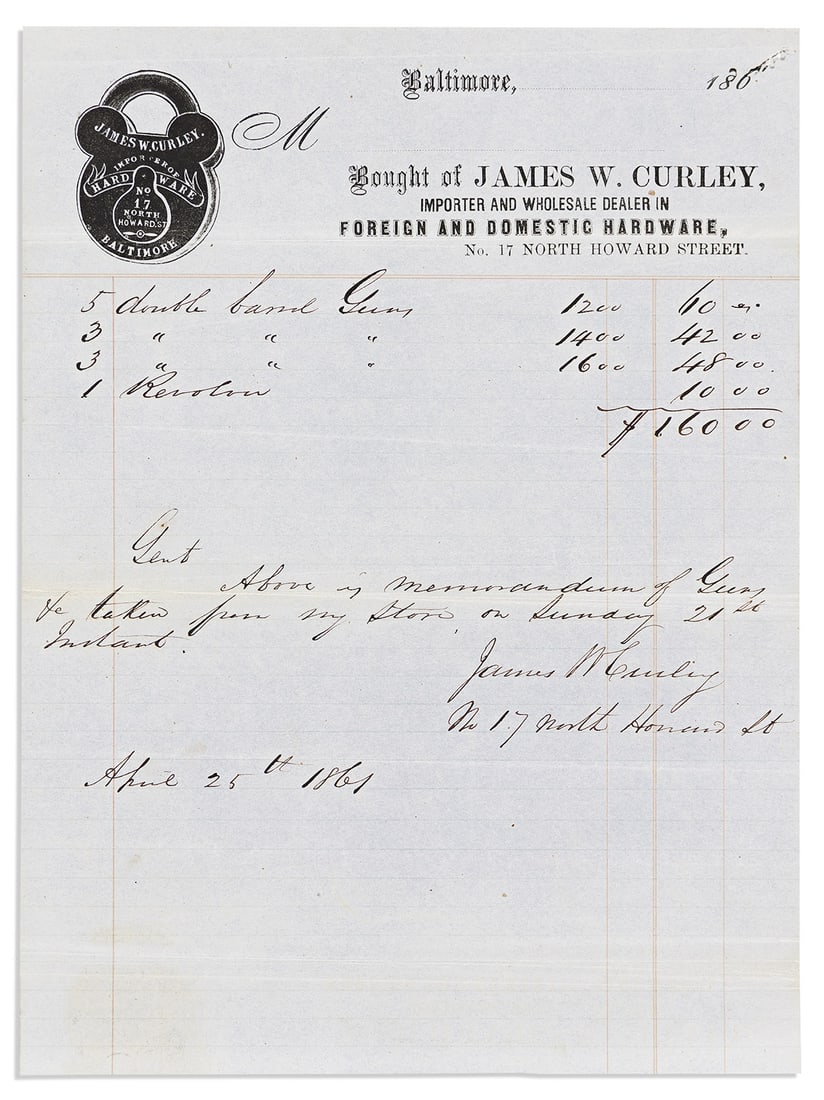 JAMES W. CURLEY.
IMPORTER OF
HARD WARE
No
17
NORTH
HOWARD. ST
BALTIMORE
Baltimore, 186
M
Bought of JAMES W. CURLEY,
IMPORTER AND WHOLESALE DEALER IN
FOREIGN AND DOMESTIC HARDWARE,
No. 17 NORTH HOWARD STREET.
5 double barrel Guns 12 00 60
3 " " " 14 00 42 00
3 " " " 16 00 48 00
1 Revolver 10 00
$ 160 00
Gent
Above is memorandum of Guns
&c taken from my Store on Sunday 21st
Instant.
James W Curley
No 17 North Howard St
April 25th 1861